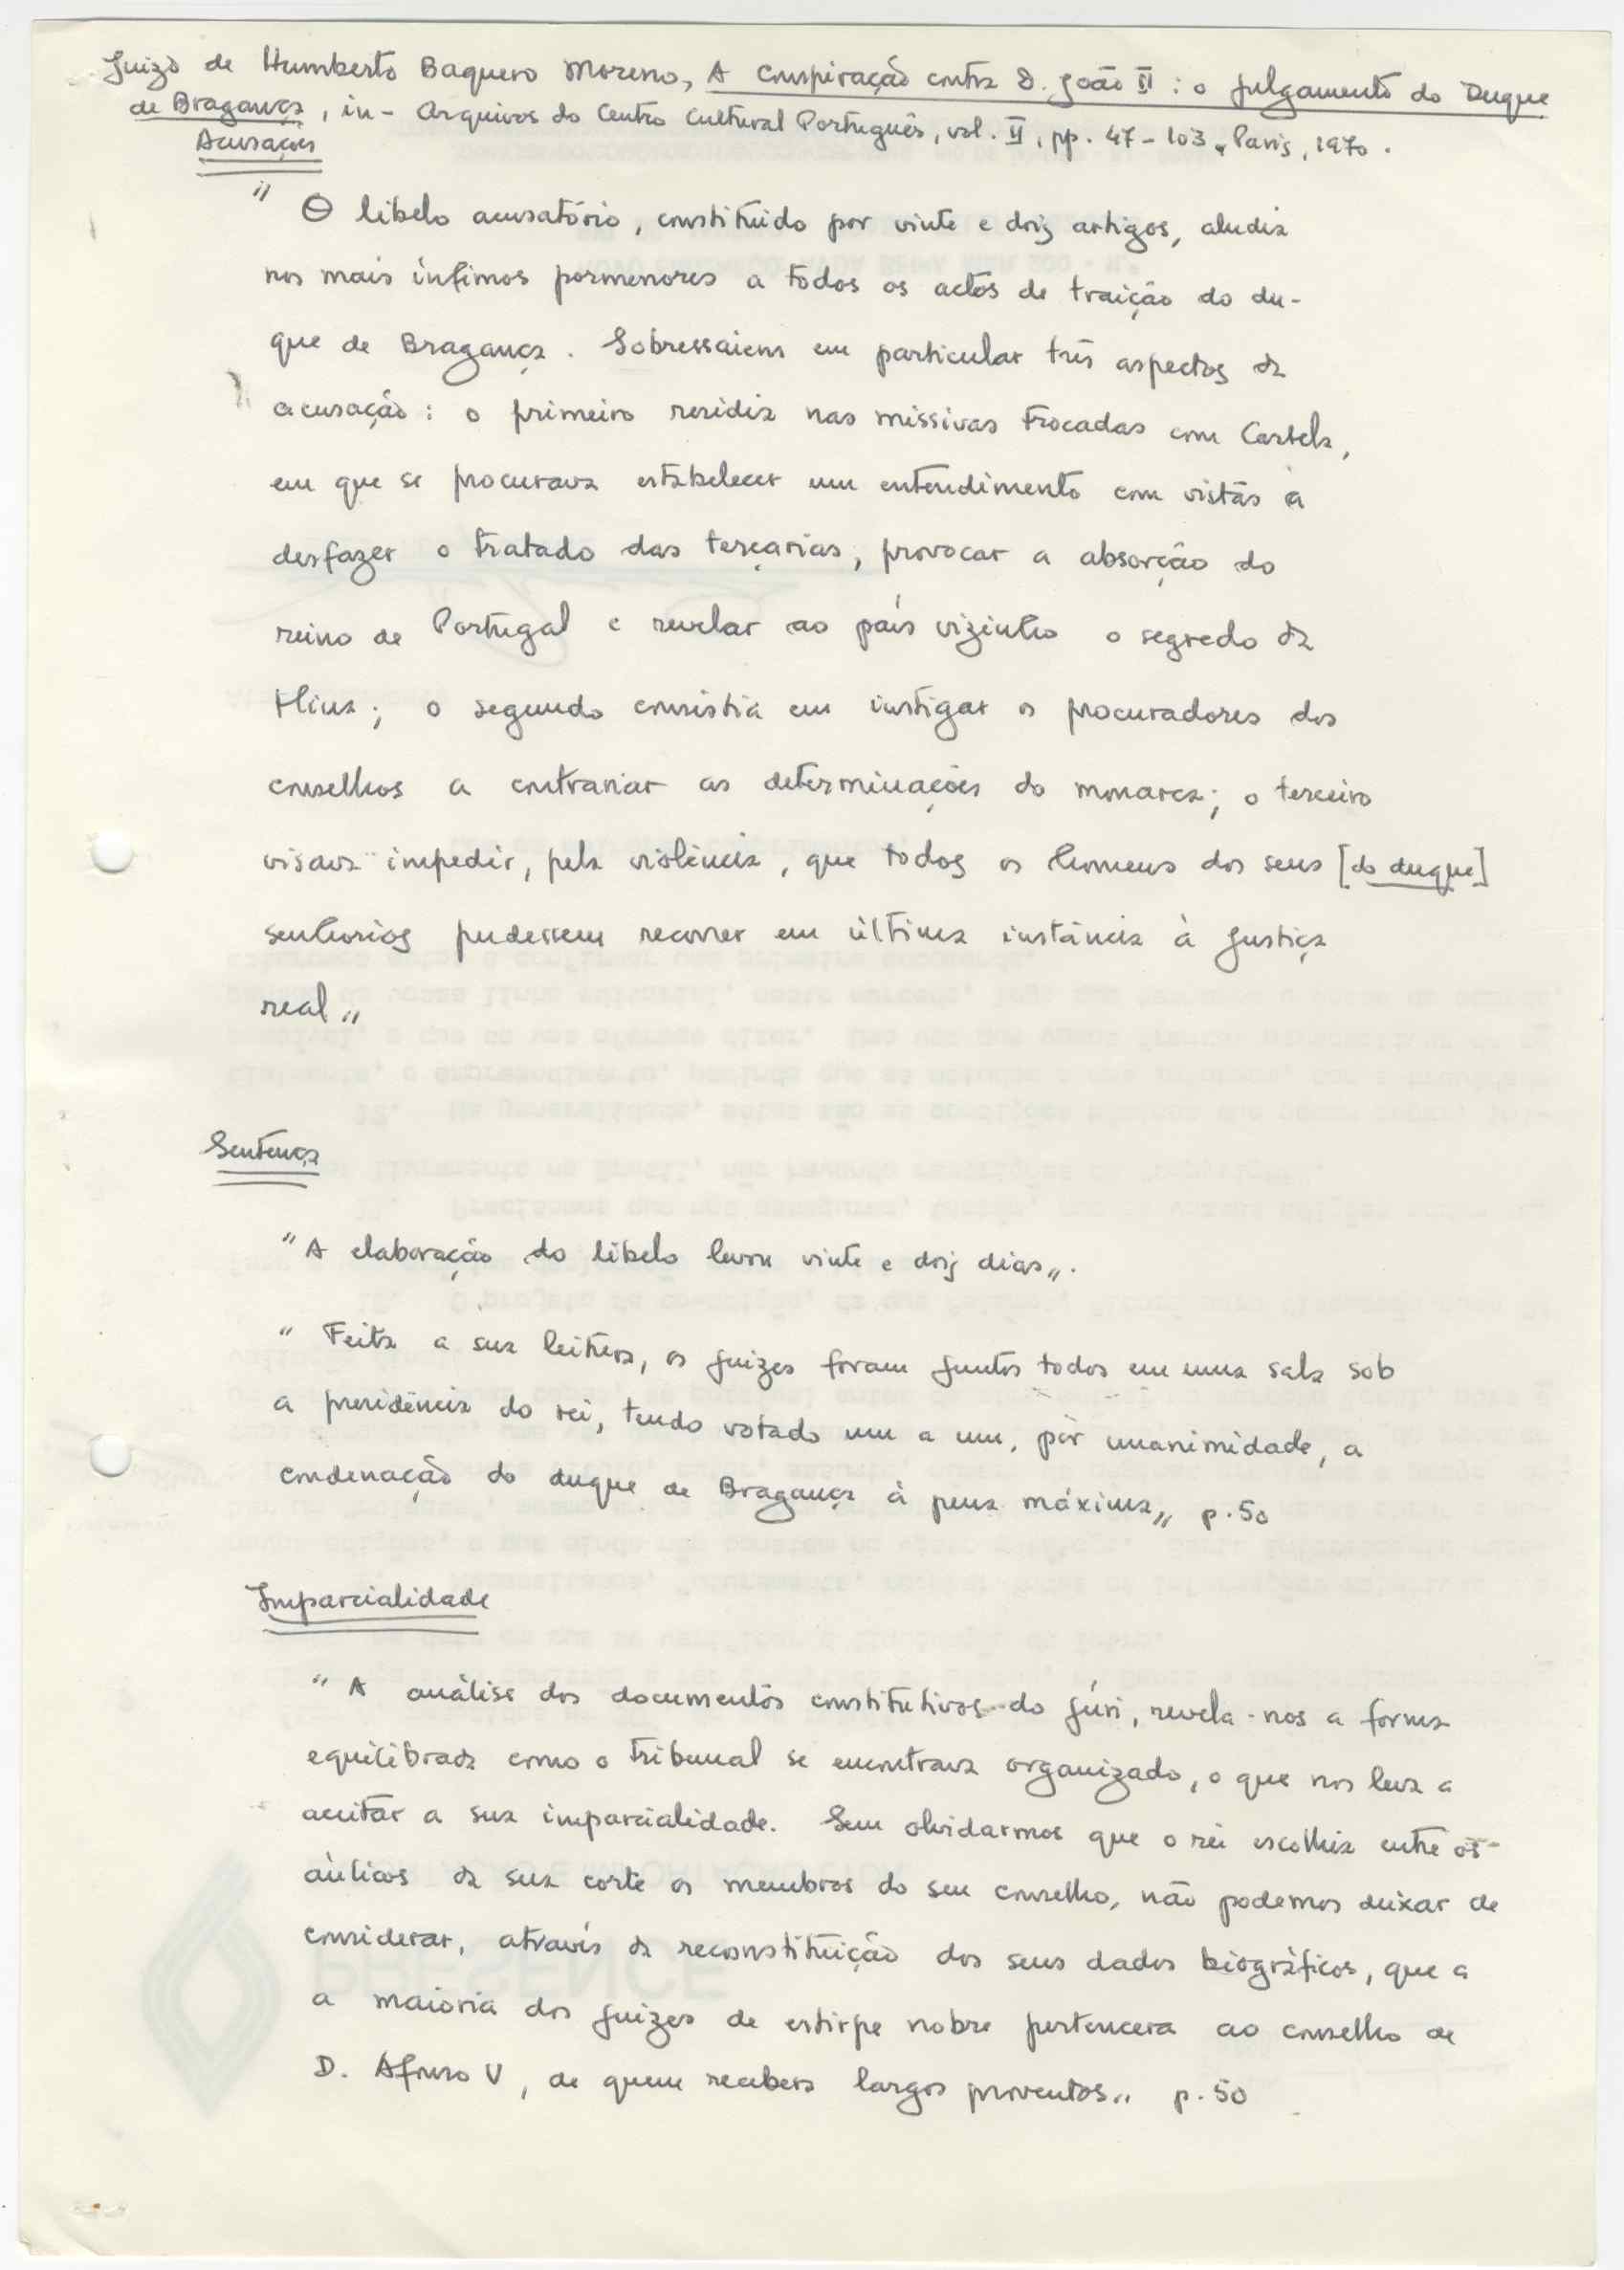 Juizo de Humberto Baquero Moreno, A Conspiração contra D. João II : o julgamento do Duque
de Bragança, in - Arquivos do Centro Cultural Português, vol. II, pp. 47-103, Paris, 1970.
Acusações
" O libelo acusatório, constituído por vinte e dois artigos, aludia
nos mais ínfimos pormenores a todos os actos de traição do du-
que de Bragança. Sobressaiem em particular três aspectos da
acusação: o primeiro residia nas missivas trocadas com Castela,
em que se procurava estabelecer um entendimento com vistas a
desfazer o tratado das terçarias, provocar a absorção do
reino de Portugal e revelar ao país vizinho o segredo da
Mina; o segundo consistia em instigar os procuradores dos
conselhos a contrariar as determinações do monarca; o terceiro
visava impedir, pela violência, que todos os homens dos seus [do duque]
senhorios pudessem recorrer em última instância à justiça
real"
Sentença
"A elaboração do libelo levou vinte e dois dias".
" Feita a sua leitura, os juizes foram juntos todos em uma sala sob
a presidência do rei, tendo votado um a um, por unanimidade, a
condenação do duque de Bragança à pena máxima" p. 50
Imparcialidade
" A análise dos documentos constitutivos do júri, revela-nos a forma
equilibrada como o tribunal se encontrava organizado, o que nos leva a
aceitar a sua imparcialidade. Sem olvidarmos que o rei escolhia entre os
áulicos da sua corte os membros do seu conselho, não podemos deixar de
considerar, através da reconstituição dos seus dados biográficos, que a
a maioria dos juizes de estirpe nobre pertencera ao conselho de
D. Afonso V, de quem recebera largos proventos" p. 50